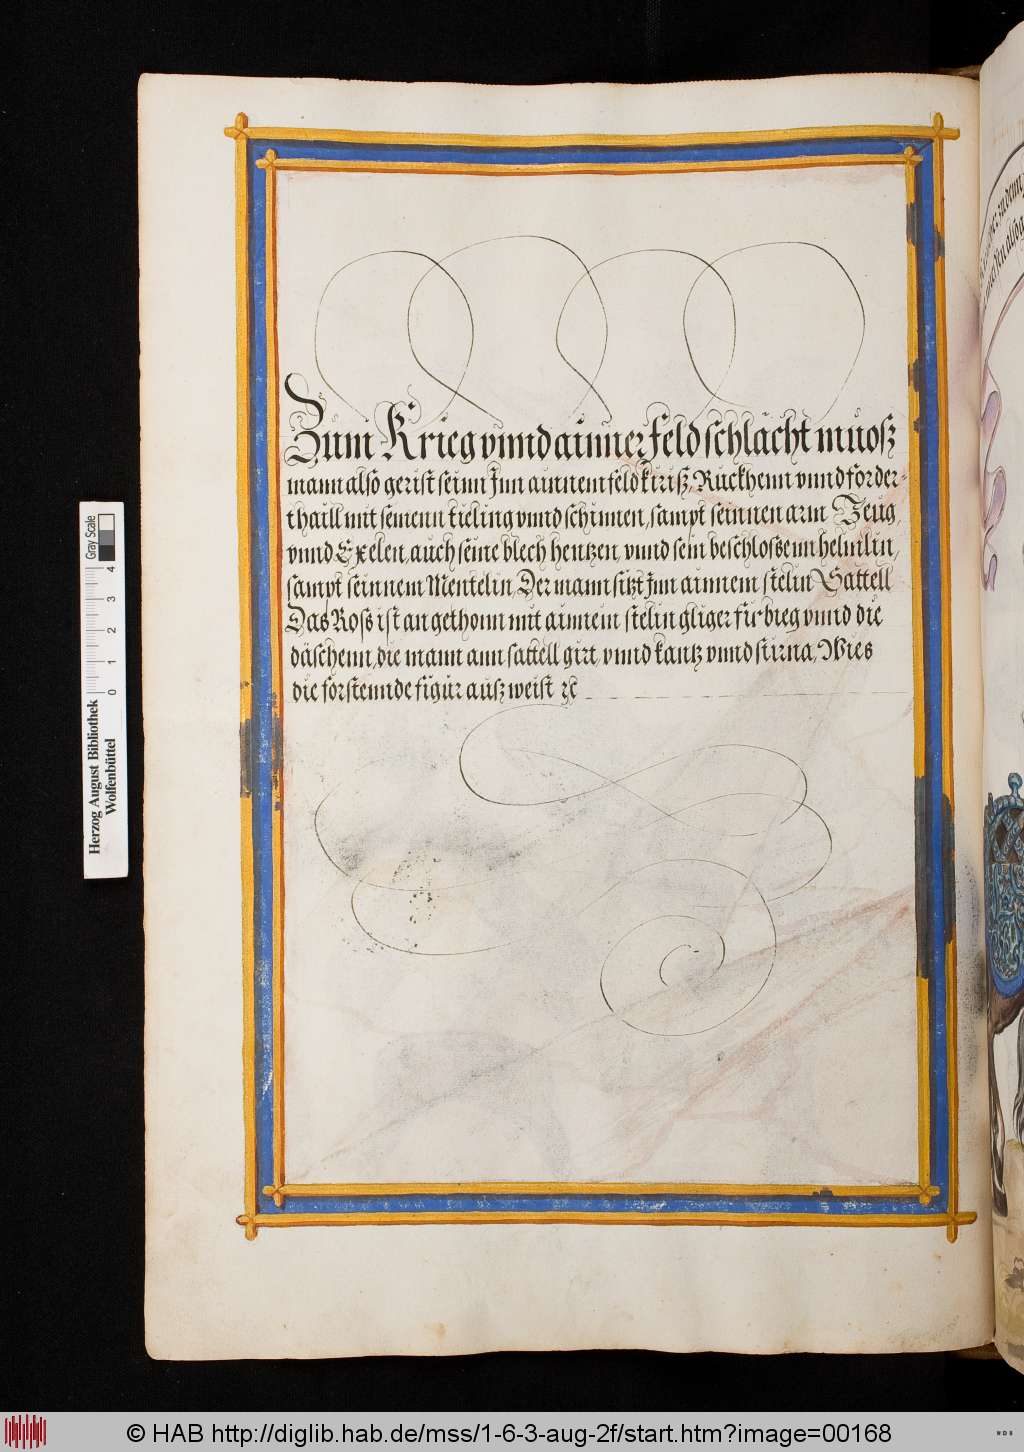 Zum Krieg vnnd ainner Feldschlacht muoß
mann also gerist seinn Jnn ainnem feldkiriß, Ruckhenn vnnd förder-
thaill mit seinenn tieling vnnd schinnen, sampt seinnen arm Zeug,
vnnd Exelen, auch seine blech hentzen, vnnd sein beschloßenn helmlin,
sampt seinnem Mentelin, Der mann sitzt Jnn ainnem stelin Sattell
Das Ross ist angethonn mit ainnem stelin gliger firbieg vnnd die
däschenn, die mann ann sattell girt, vnnd kantz vnnd stirna, Wies
die forstennde figur außweist ꝛc
Herzog August Bibliothek
Wolfenbüttel
Gray Scale
0 1 2 3 4
© HAB http://diglib.hab.de/mss/1-6-3-aug-2f/start.htm?image=00168